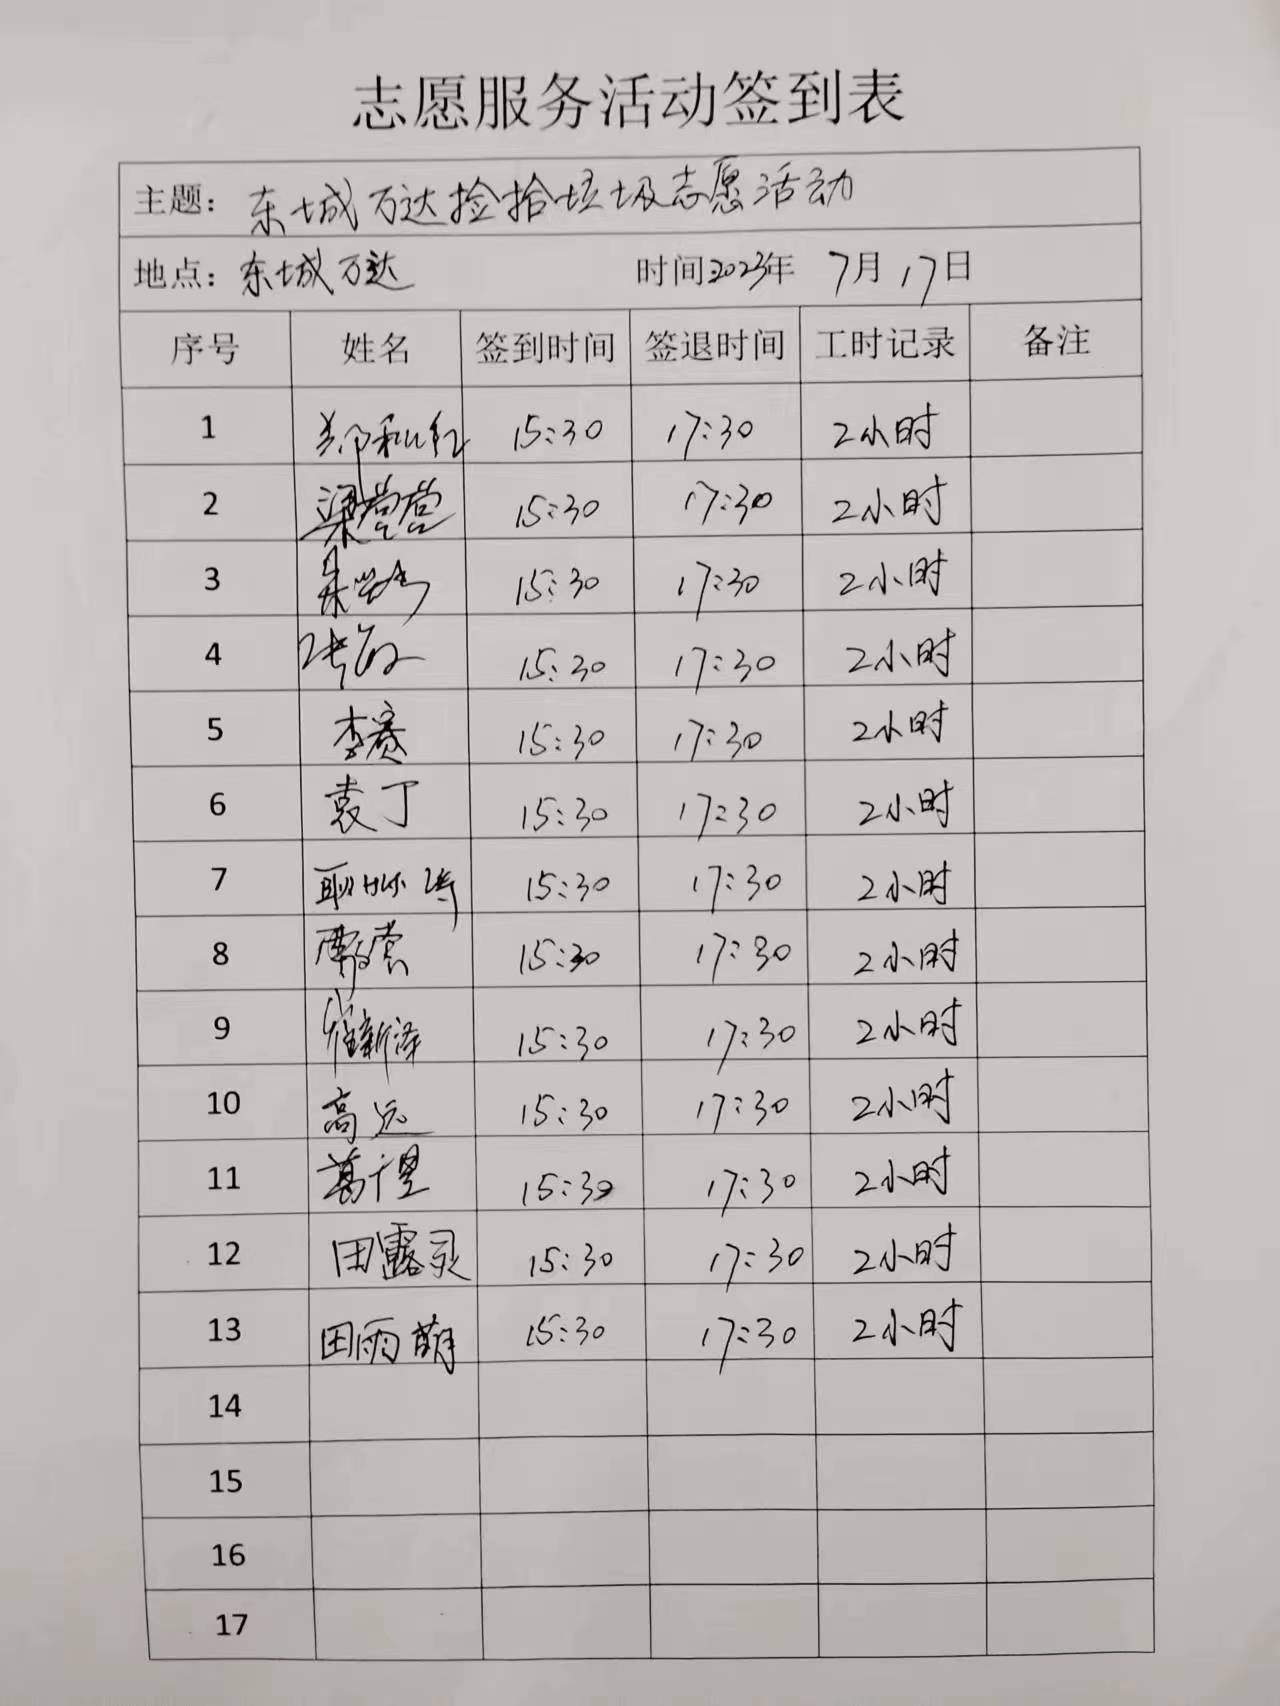 志愿服务活动签到表
主题: 东城万达捡拾垃圾志愿活动
地点: 东城万达 时间2023年 7月17日
序号 姓名 签到时间 签退时间 工时记录 备注
1 郑利红 15:30 17:30 2小时
2 梁营营 15:30 17:30 2小时
3 15:30 17:30 2小时
4 张 15:30 17:30 2小时
5 李赛 15:30 17:30 2小时
6 袁丁 15:30 17:30 2小时
7 耿 15:30 17:30 2小时
8 15:30 17:30 2小时
9 崔新泽 15:30 17:30 2小时
10 高远 15:30 17:30 2小时
11 葛 15:30 17:30 2小时
12 田露灵 15:30 17:30 2小时
13 田雨萌 15:30 17:30 2小时
14
15
16
17